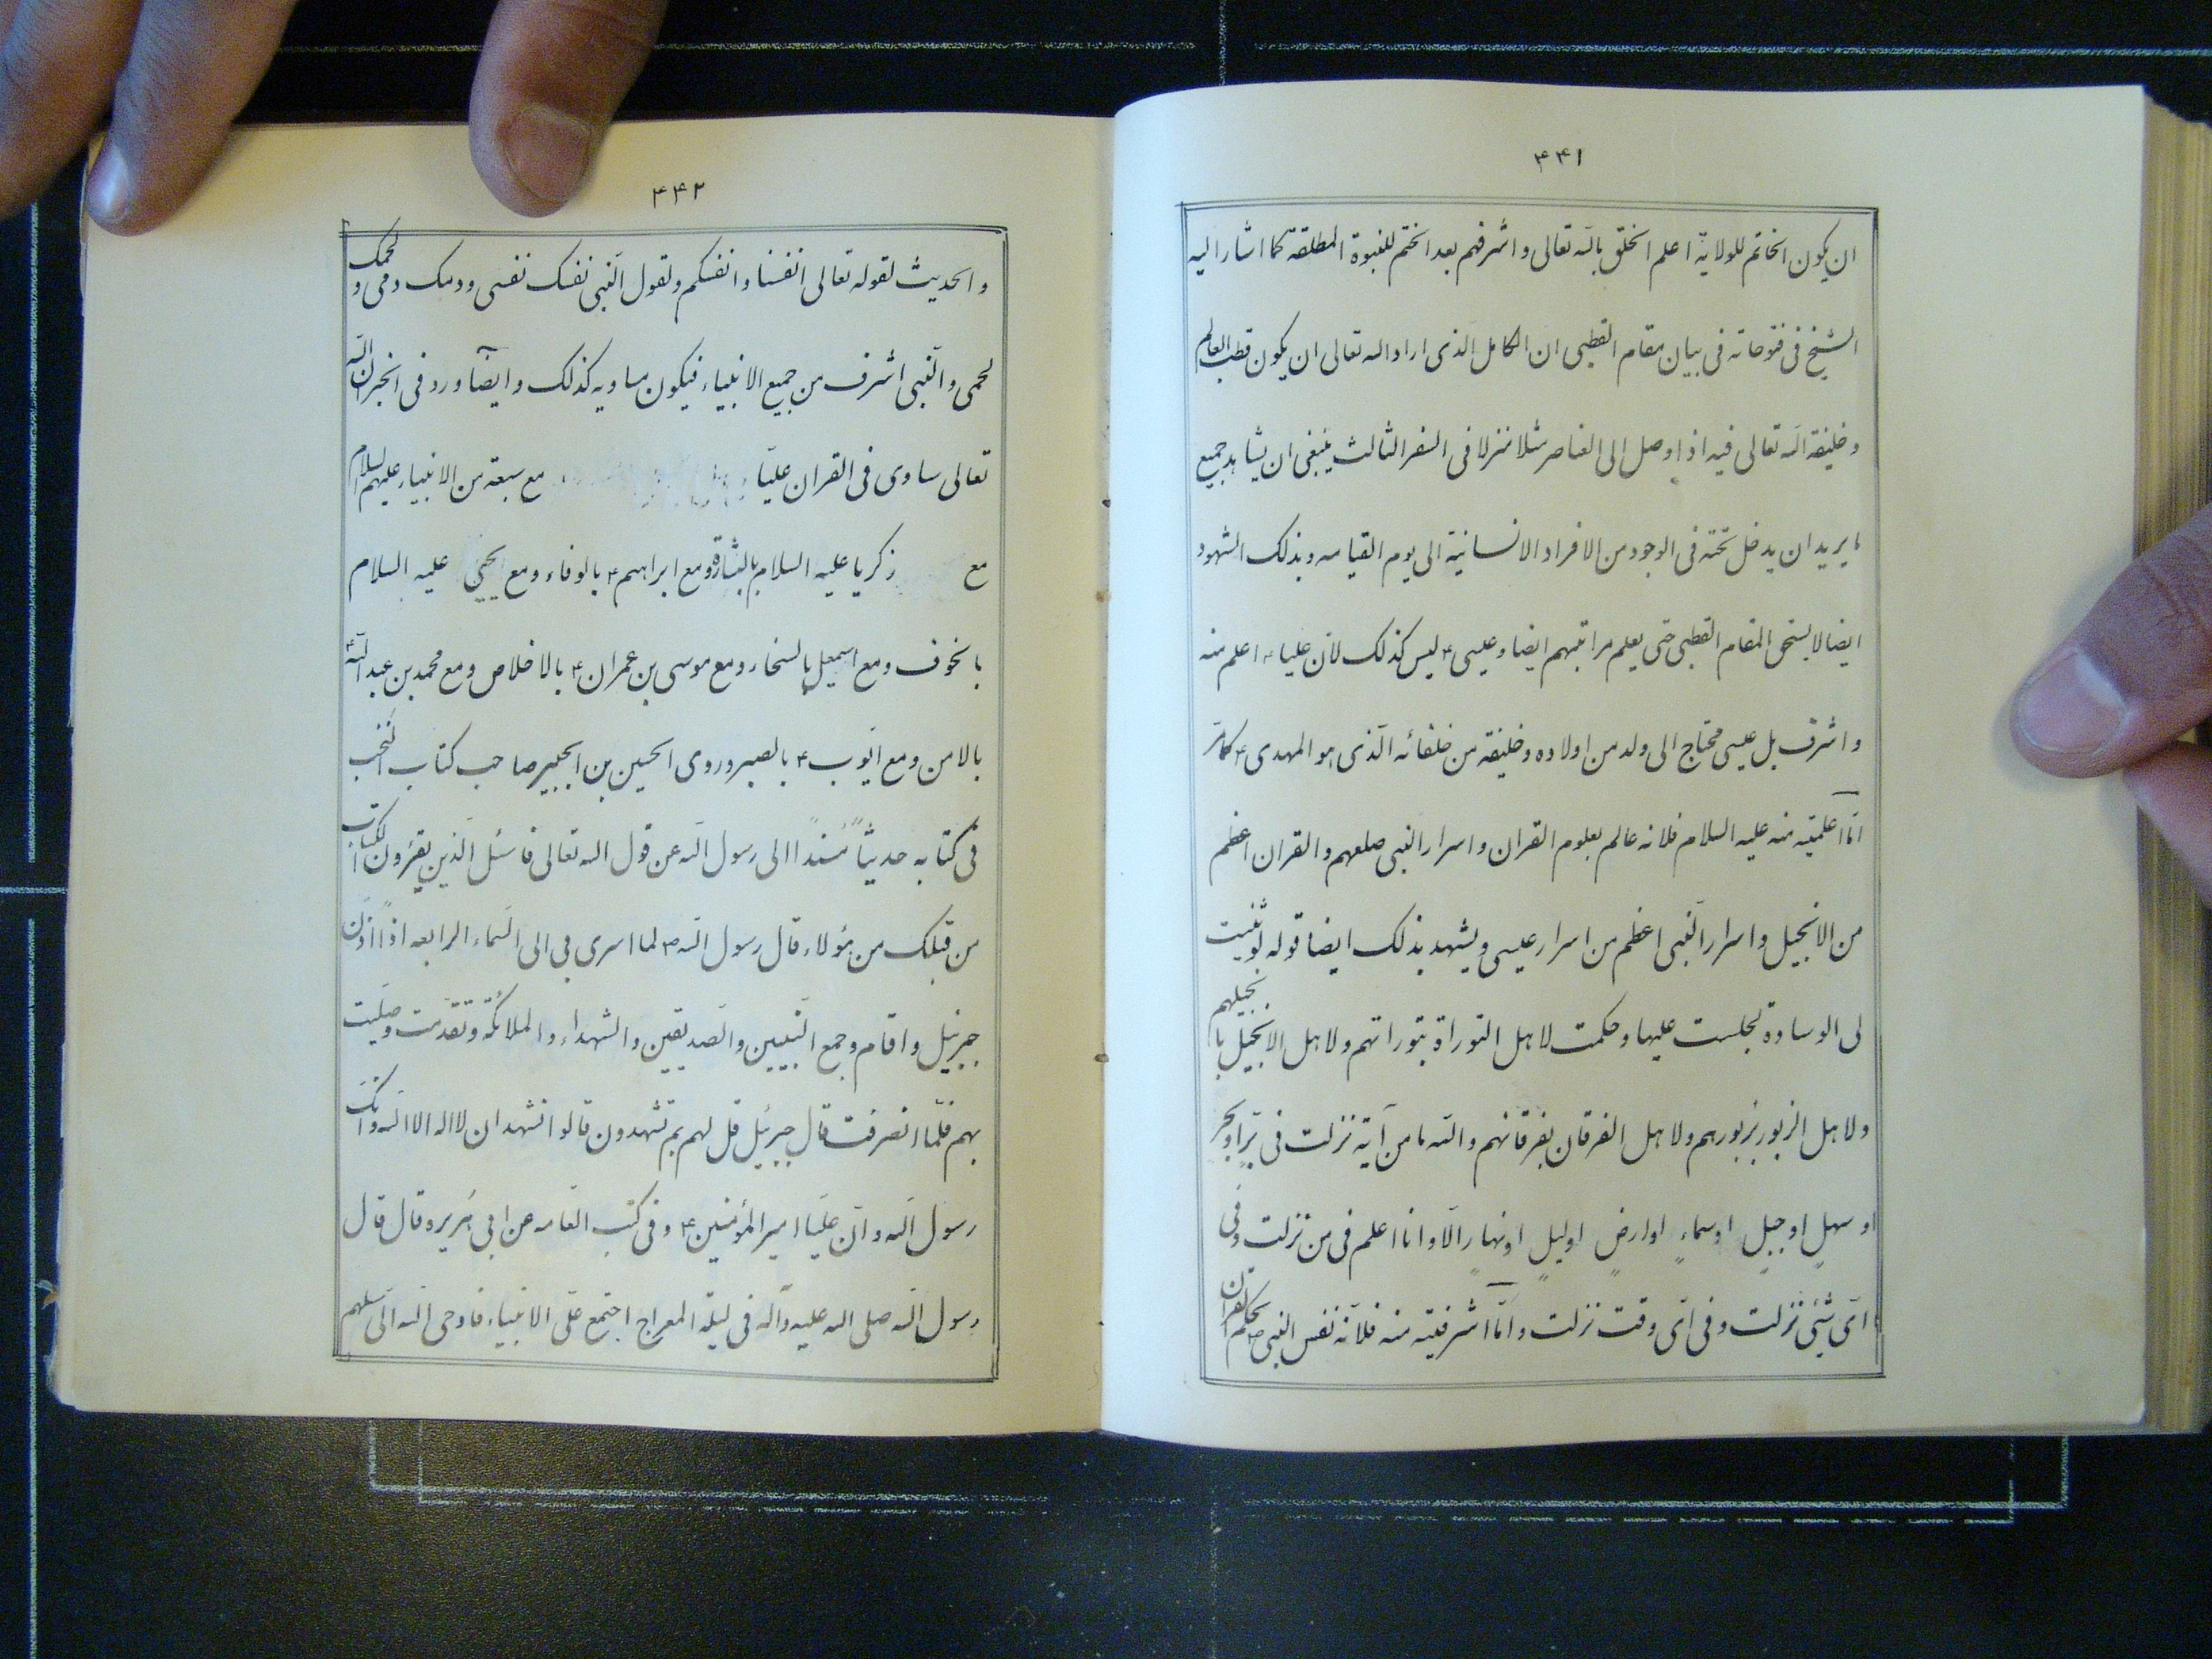 ۴۴۱
ان یکون الخاتم للولایة اعلم الخلق بالله تعالی و اشرفهم بعد الختم للنبوة المطلقة کما اشار الیه
الشیخ فی فتوحاته فی بیان مقام القطبی ان الکامل الذی اراد الله تعالی ان یکون قطب العالم
و خلیفة الله تعالی فیه اذا وصل الی العناصر مثلا منزلا فی السفر الثالث ینبغی ان یشاهد جمیع
ما یرید ان یدخل تحته فی الوجود من الافراد الانسانیة الی یوم القیامه و بذلک الشهود
ایضا لا یستحق المقام القطبی حتی یعلم مراتبهم ایضا و عیسی ۴ لیس کذلک لان علیا ۴ اعلم منه
و اشرف بل عیسی محتاج الی ولد من اولاده و خلیفة من خلفائه الّذی هو المهدی ۴ کما مرّ
امّا اعلمیّته منه علیه السلام فلانه عالم بعلوم القران و اسرار النبی صلعهم و القران اعظم
من الانجیل و اسرار النّبی اعظم من اسرار عیسی و یشهد بذلک ایضا قوله لو ثنیت
لی الوسادة لجلست علیها و حکمت لاهل التوراة بتوراتهم و لاهل الانجیل بانجیلهم
و لاهل الزبور بزبورهم و لاهل الفرقان بفرقانهم و الله ما من آیة نزلت فی برّ او بحر
او سهلٍ او جبلٍ او سماءٍ او ارضٍ او لیلٍ او نهارٍ الّا و انا اعلم فی من نزلت و فی
ایّ شیئ نزلت و فی ایّ وقت نزلت و امّا اشرفیته منه فلانّه نفس النبی ص بحکم القران
۴۴۲
و الحدیث لقوله تعالی انفسنا و انفسکم و لقول النّبی نفسک نفسی و دمک دمی و لحمک
لحمی و النّبی اشرف من جمیع الانبیاء فیکون مساویه کذلک و ایضاً ورد فی الخبر ان الله
تعالی ساوی فی القران علیّا مع سبعة من الانبیاء علیهم السلام
مع زکریا علیه السلام بالبشارة و مع ابراهیم ۴ بالوفاء و مع یحیی علیه السلام
بالخوف و مع اسمعیل بالسخاء و مع موسی بن عمران ۴ بالاخلاص و مع محمد بن عبد الله ۴
بالامن و مع ایّوب ۴ بالصبر و روی الحسین بن الجبیر صاحب کتاب النخب
فی کتابه حدیثاً مسنداً الی رسول الله عن قول الله تعالی فاسئل الّذین یقرؤن الکتاب
من قبلک من هؤلاء قال رسول الله ص لما اسری بی الی السّماء الرابعه اذاً اذّن
جبرئیل و اقام و جمع النّبیین و الصّدیقین و الشهداء و الملائکة و تقدّمت و صلّیت
بهم فلمّا انصرفت قال جبرئیل قل لهم بم تشهدون قالوا نشهد ان لا اله الا الله و انّک
رسول الله و انّ علیّا امیر المؤمنین ۴ و فی کتب العامه عن ابی هریره قال قال
رسول الله صلی الله علیه و آله فی لیلة المعراج اجتمع علّی الانبیاء فاوحی الله الیّ سلهم